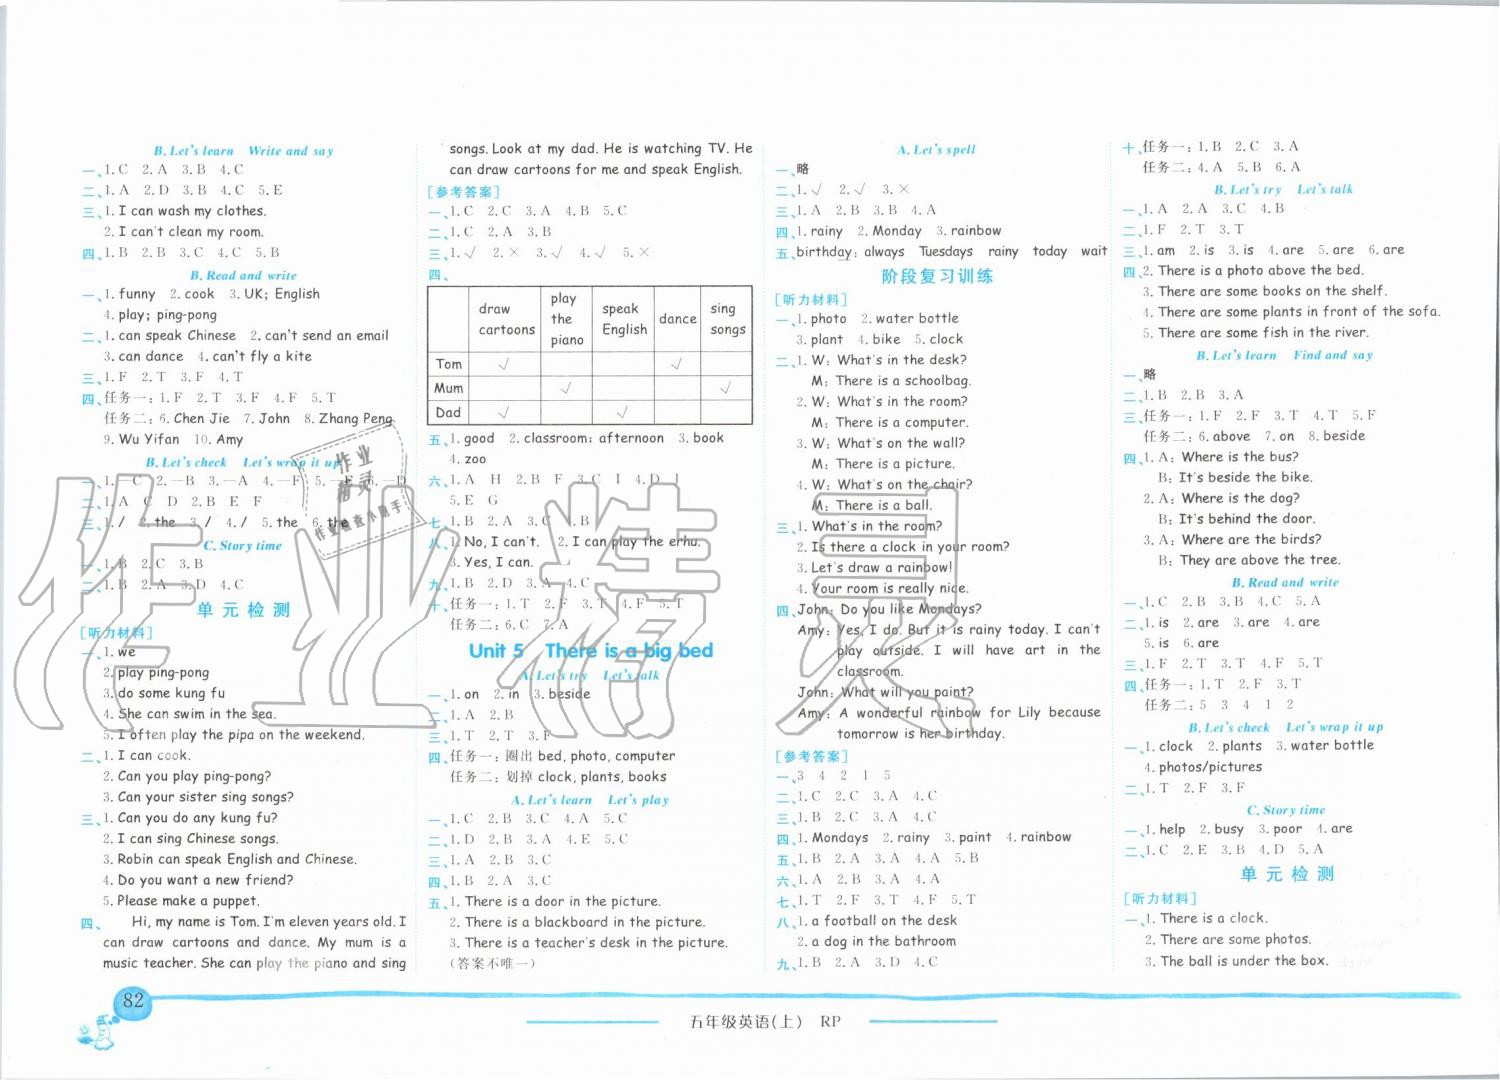 B. Let's learn Write and say
一、1. C 2. A 3. B 4. C
二、1. A 2. D 3. B 4. C 5. E
三、1. I can wash my clothes.
2. I can't clean my room.
四、1. B 2. B 3. C 4. C 5. B
B. Read and write
一、1. funny 2. cook 3. UK; English
4. play; ping-pong
二、1. can speak Chinese 2. can't send an email
3. can dance 4. can't fly a kite
三、1. F 2. T 3. F 4. T
四、任务一:1. F 2. T 3. F 4. F 5. T
任务二:6. Chen Jie 7. John 8. Zhang Peng
9. Wu Yifan 10. Amy
B. Let's check Let's wrap it up
一、1. —C 2. —B 3. —A 4. —F 5. —E 6. —D
二、1. A C D 2. B E F
三、1. / 2. the 3. / 4. / 5. the 6. the
C. Story time
一、1. B 2. C 3. B
二、1. B 2. A 3. D 4. C
单元检测
[听力材料]
一、1. we
2. play ping-pong
3. do some kung fu
4. She can swim in the sea.
5. I often play the pipa on the weekend.
二、1. I can cook.
2. Can you play ping-pong?
3. Can your sister sing songs?
三、1. Can you do any kung fu?
2. I can sing Chinese songs.
3. Robin can speak English and Chinese.
4. Do you want a new friend?
5. Please make a puppet.
四、 Hi, my name is Tom. I'm eleven years old. I
can draw cartoons and dance. My mum is a
music teacher. She can play the piano and sing
songs. Look at my dad. He is watching TV. He
can draw cartoons for me and speak English.
[参考答案]
一、1. C 2. C 3. A 4. B 5. C
二、1. C 2. A 3. B
三、1. √ 2. × 3. √ 4. √ 5. ×
四、
draw cartoons play the piano speak English dance sing songs
Tom √ √
Mum √ √
Dad √ √
五、1. good 2. classroom; afternoon 3. book
4. zoo
六、1. A H 2. B F 3. C I 4. D J
5. E G
七、1. B 2. A 3. C 4. B
八、1. No, I can't. 2. I can play the erhu.
3. Yes, I can.
九、1. B 2. D 3. A 4. C
十、任务一:1. T 2. F 3. T 4. F 5. T
任务二:6. C 7. A
Unit 5 There is a big bed
A. Let's try Let's talk
一、1. on 2. in 3. beside
二、1. A 2. B
三、1. T 2. T 3. F
四、任务一:圈出 bed, photo, computer
任务二:划掉 clock, plants, books
A. Let's learn Let's play
一、1. C 2. B 3. C 4. A 5. C
二、1. D 2. B 3. A 4. E 5. C
三、1. A 2. B 3. C
四、1. B 2. A 3. C
五、1. There is a door in the picture.
2. There is a blackboard in the picture.
3. There is a teacher's desk in the picture.
(答案不唯一)
A. Let's spell
一、略
二、1. √ 2. √ 3. ×
三、1. A 2. B 3. B 4. A
四、1. rainy 2. Monday 3. rainbow
五、birthday: always Tuesdays rainy today wait
阶段复习训练
[听力材料]
一、1. photo 2. water bottle
3. plant 4. bike 5. clock
二、1. W: What's in the desk?
M: There is a schoolbag.
2. W: What's in the room?
M: There is a computer.
3. W: What's on the wall?
M: There is a picture.
4. W: What's on the chair?
M: There is a ball.
三、1. What's in the room?
2. Is there a clock in your room?
3. Let's draw a rainbow!
4. Your room is really nice.
四、John: Do you like Mondays?
Amy: Yes, I do. But it is rainy today. I can't
play outside. I will have art in the
classroom.
John: What will you paint?
Amy: A wonderful rainbow for Lily because
tomorrow is her birthday.
[参考答案]
一、3 4 2 1 5
二、1. C 2. C 3. A 4. C
三、1. B 2. C 3. A 4. C
四、1. Mondays 2. rainy 3. paint 4. rainbow
五、1. B 2. A 3. A 4. A 5. B
六、1. A 2. B 3. B 4. C
七、1. T 2. F 3. T 4. F 5. T
八、1. a football on the desk
2. a dog in the bathroom
九、1. B 2. A 3. D 4. C
十、任务一:1. B 2. C 3. A
任务二:4. A 5. B 6. A
B. Let's try Let's talk
一、1. A 2. A 3. C 4. B
二、1. F 2. T 3. T
三、1. am 2. is 3. is 4. are 5. are 6. are
四、2. There is a photo above the bed.
3. There are some books on the shelf.
4. There are some plants in front of the sofa.
5. There are some fish in the river.
B. Let's learn Find and say
一、略
二、1. B 2. B 3. A
三、任务一:1. F 2. F 3. T 4. T 5. F
任务二:6. above 7. on 8. beside
四、1. A: Where is the bus?
B: It's beside the bike.
2. A: Where is the dog?
B: It's behind the door.
3. A: Where are the birds?
B: They are above the tree.
B. Read and write
一、1. C 2. B 3. B 4. C 5. A
二、1. is 2. are 3. are 4. are
5. is 6. are
三、1. F 2. T 3. T 4. F 5. T
四、任务一:1. T 2. F 3. T
任务二:5 3 4 1 2
B. Let's check Let's wrap it up
一、1. clock 2. plants 3. water bottle
4. photos/pictures
二、1. T 2. F 3. F
C. Story time
一、1. help 2. busy 3. poor 4. are
二、1. C 2. E 3. B 4. D 5. A
单元检测
[听力材料]
一、1. There is a clock.
2. There are some photos.
3. The ball is under the box.
82
五年级英语(上) RP
作业精灵
作业
精灵
作业检查小助手